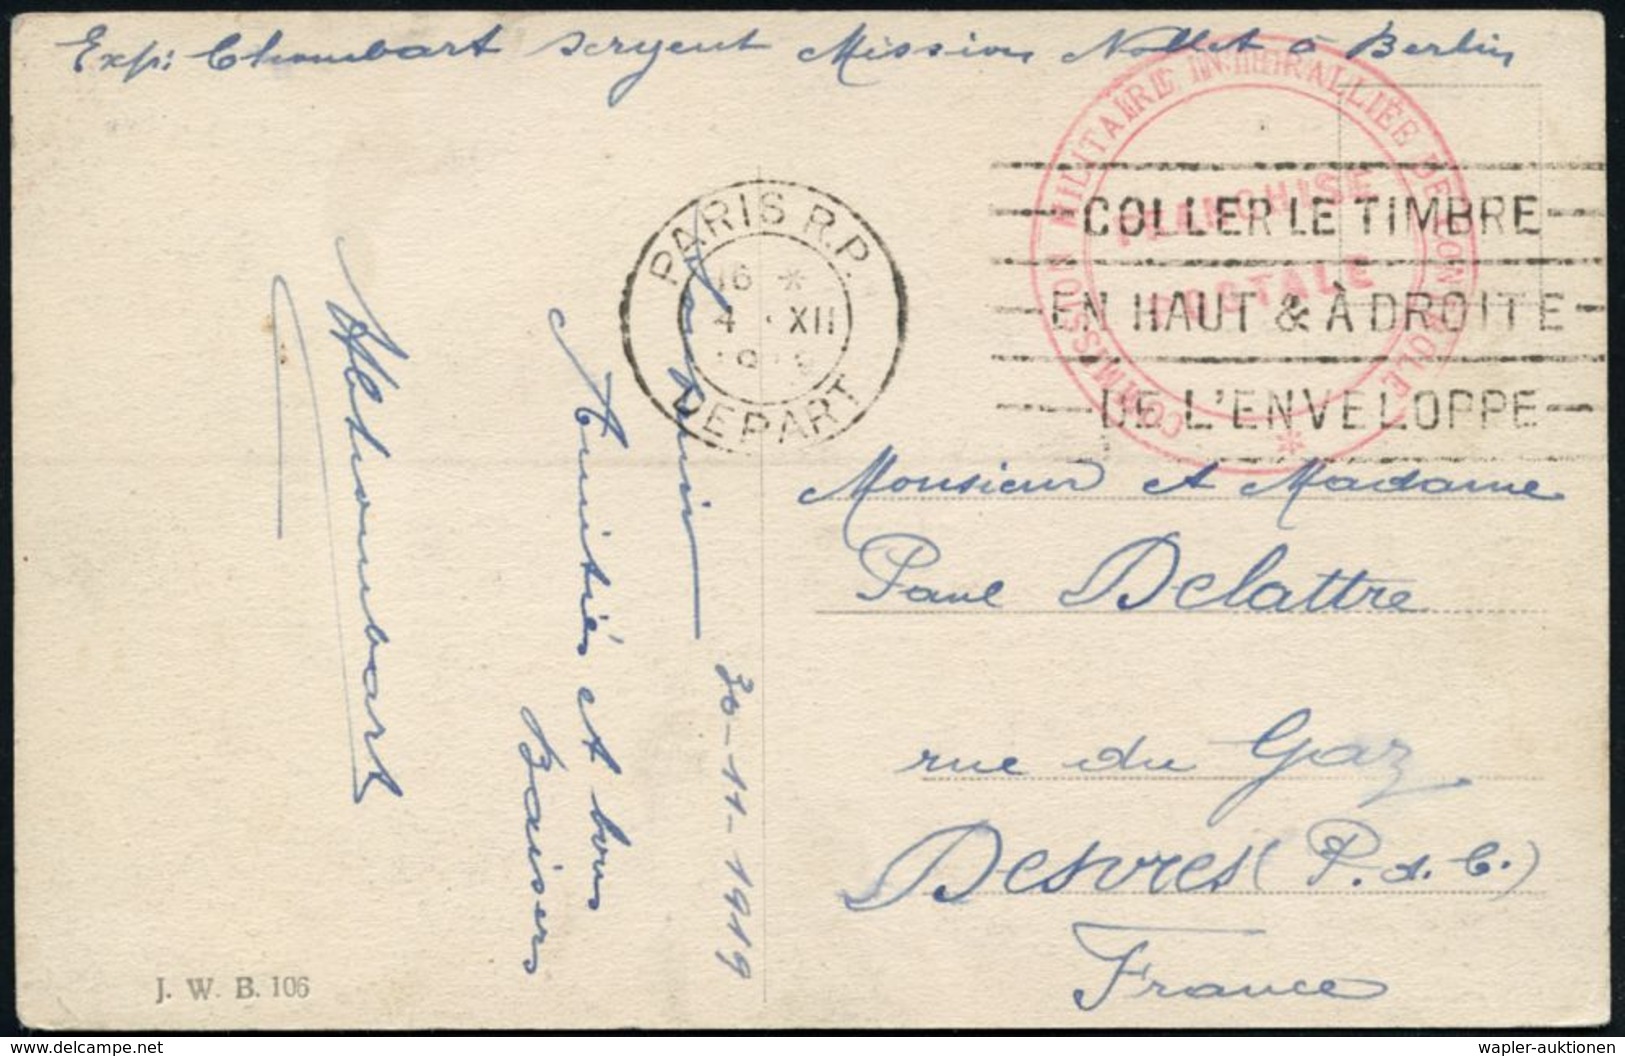 Exp: Chombart sergent Mission Nollet à Berlin
COMMISSION MILITAIRE INTERALLIÉE DE CONTROLE
FRANCHISE
POSTALE
PARIS R.P.
16 *
4 . XII
DEPART
COLLER LE TIMBRE
EN HAUT & À DROITE
DE L'ENVELOPPE
30-11-1919
Amitiés et bons
Baisers
Monsieur et Madame
Paul Delattre
rue du Gaz
Desvres (P. d. C.)
France
J. W. B. 106
delcampe.net
wapler-auktionen